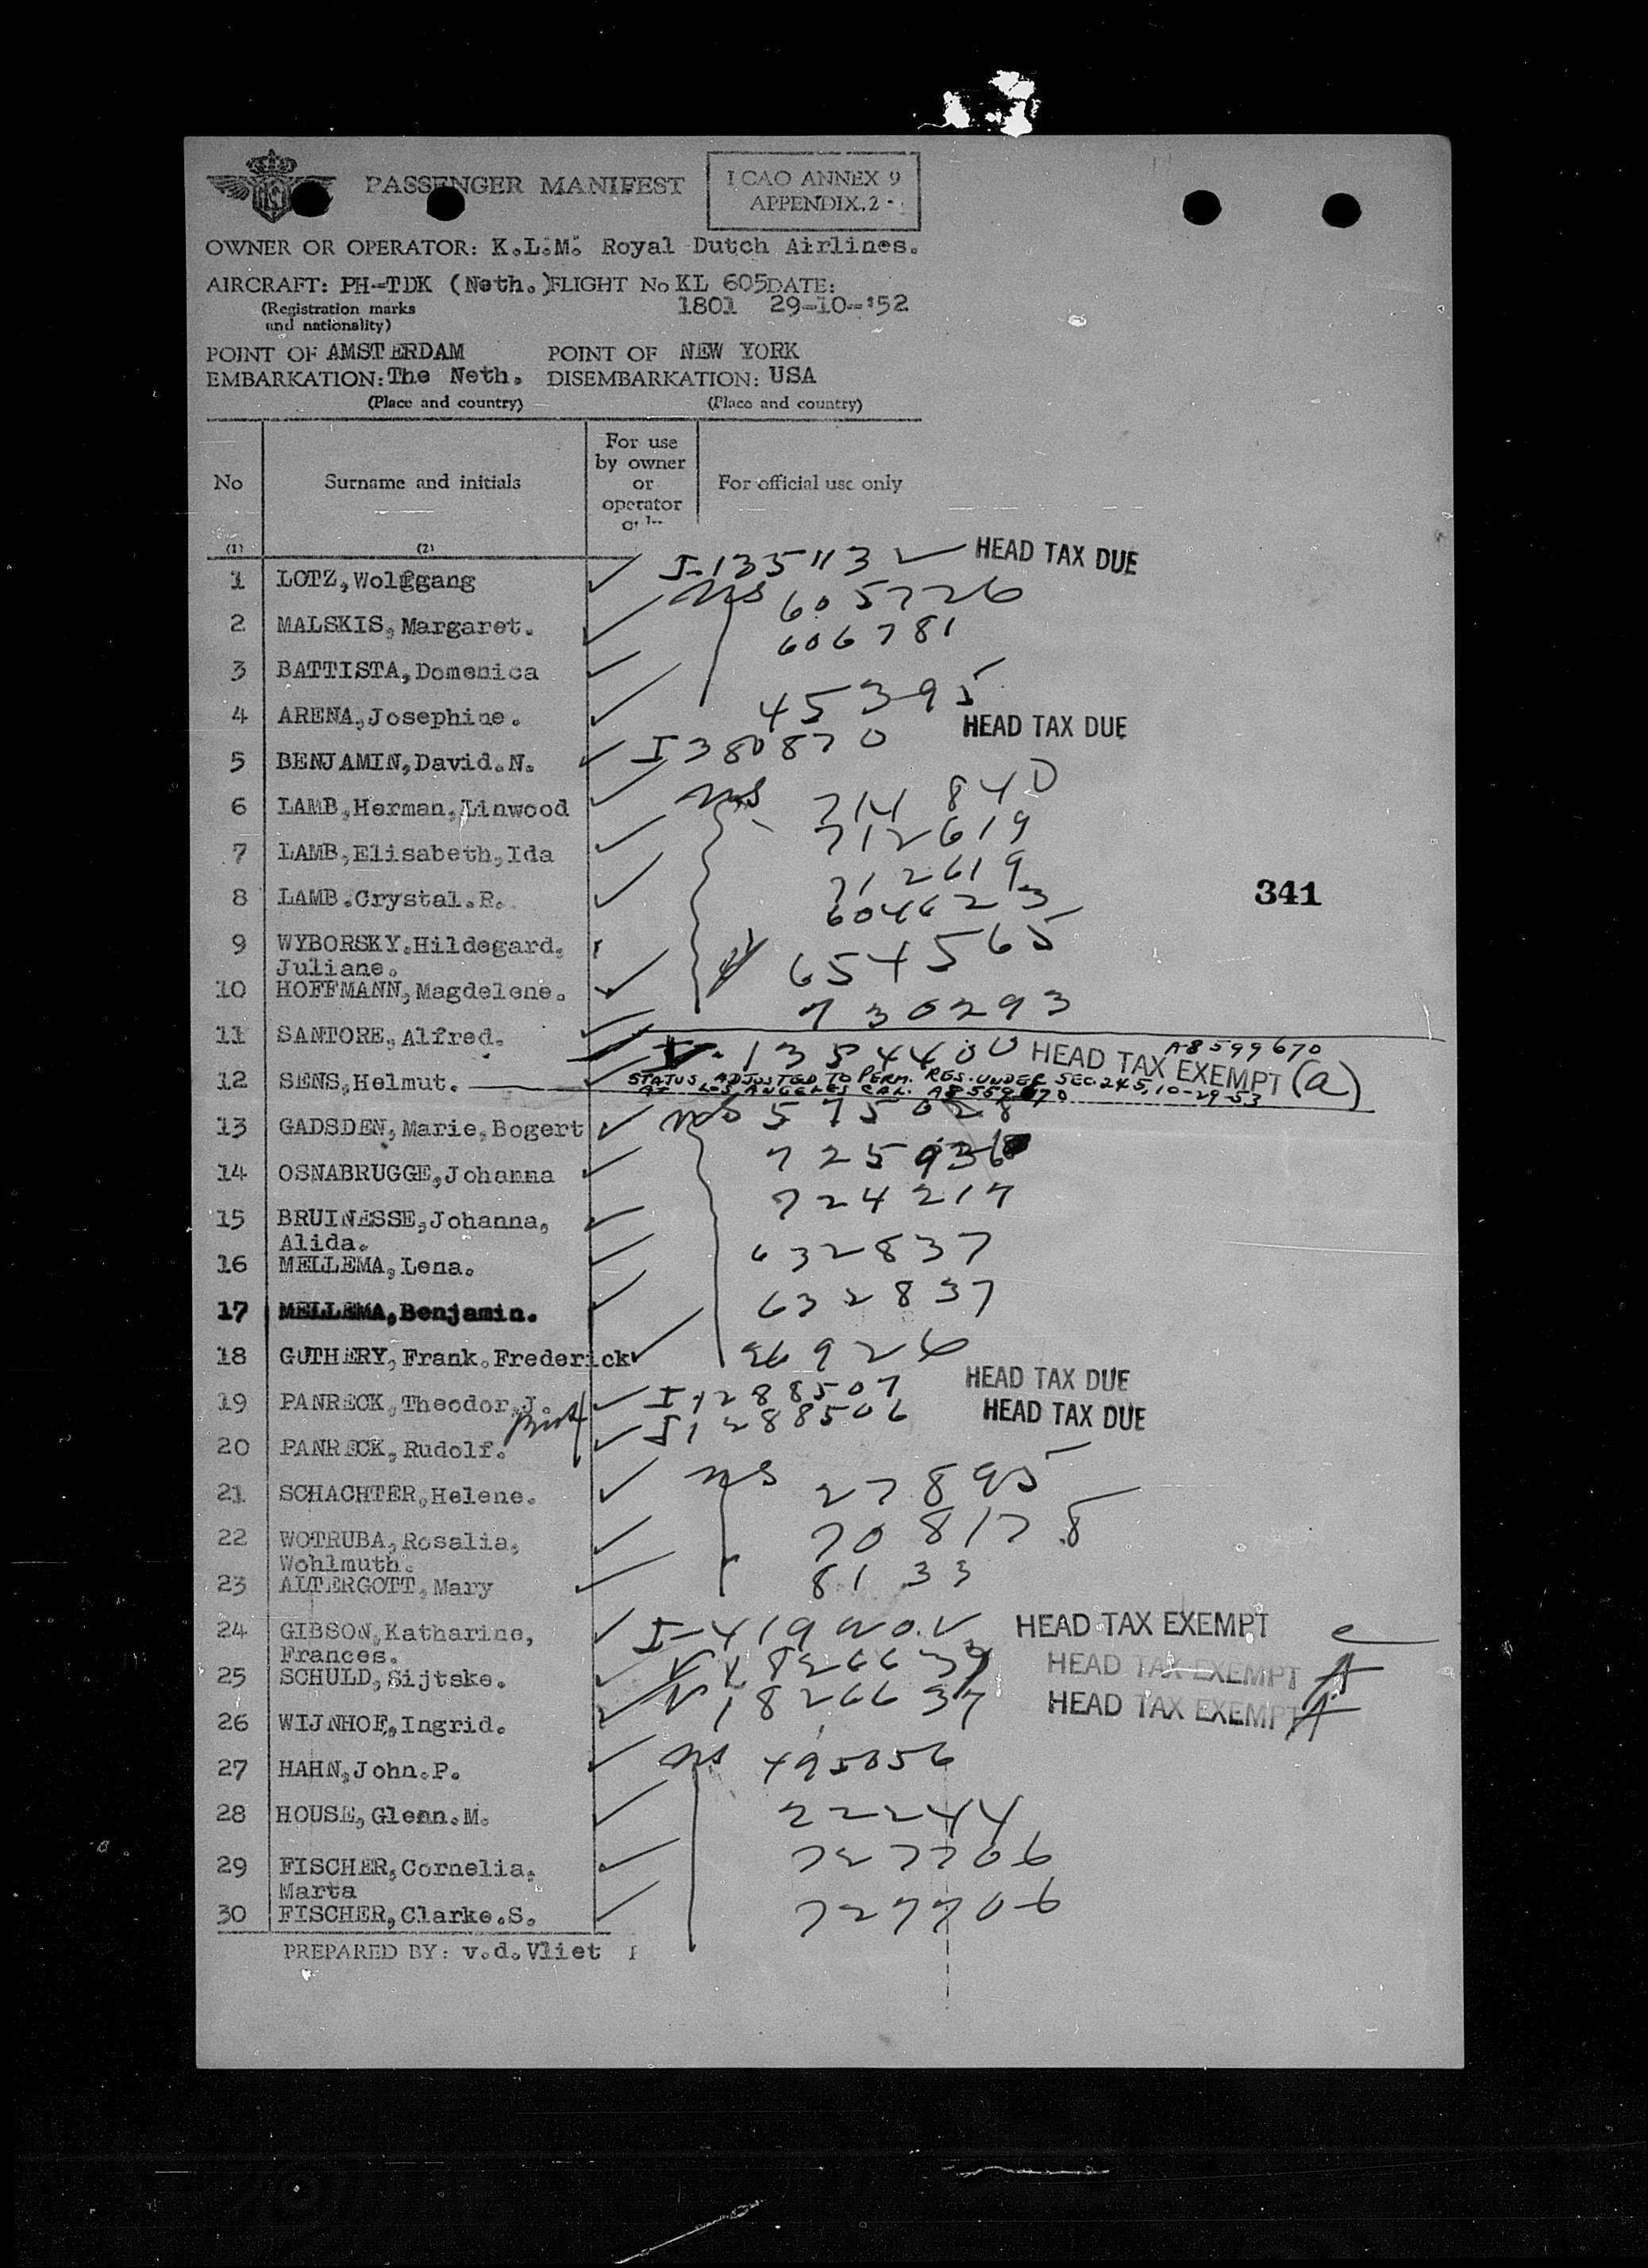 PASSENGER MANIFEST
ICAO ANNEX 9
APPENDIX.2
OWNER OR OPERATOR: K.L.M. Royal Dutch Airlines.
AIRCRAFT: PH-TDK (Neth.) FLIGHT No KL 605 DATE:
(Registration marks 1801 29-10-'52
and nationality)
POINT OF AMSTERDAM POINT OF NEW YORK
EMBARKATION: The Neth. DISEMBARKATION: USA
(Place and country) (Place and country)
No Surname and initials For use by owner or operator For official use only
(1) (2)
HEAD TAX DUE
1 LOTZ, Wolfgang
605726
2 MALSKIS, Margaret.
606781
3 BATTISTA, Domenica
45395
4 ARENA, Josephine.
HEAD TAX DUE
I 380870
5 BENJAMIN, David.N.
ns 714 840
6 LAMB, Herman, Linwood
712619
7 LAMB, Elisabeth, Ida
712619
8 LAMB.Crystal.R.
341
604623
9 WYBORSKY.Hildegard.
Juliane.
654565
10 HOFFMANN, Magdelene.
730293
11 SANTORE, Alfred.
A8599670
HEAD TAX EXEMPT (a)
12 SENS, Helmut.
STATUS ADJUSTED TO PERM. RES. UNDER SEC. 245, 10-29-53
AT LOS ANGELES CAL.
ns 575028
13 GADSDEN, Marie, Bogert
14 OSNABRUGGE, Johanna
724217
15 BRUINESSE, Johanna,
Alida.
632837
16 MELLEMA, Lena.
632837
17 MELLEMA, Benjamin.
18 GUTHERY, Frank.Frederick
HEAD TAX DUE
I 1288507
19 PANRECK, Theodor, J.
HEAD TAX DUE
I 1288506
20 PANRECK, Rudolf.
ns 27895
21 SCHACHTER, Helene.
708178
22 WOTRUBA, Rosalia,
Wohlmuth.
8133
23 ALTERGOTT, Mary
24 GIBSON, Katharine,
Frances.
HEAD TAX EXEMPT
25 SCHULD, Sijtske.
HEAD TAX EXEMPT A
26 WIJNHOF, Ingrid.
HEAD TAX EXEMPT A
27 HAHN, John.P.
ns 495056
28 HOUSE, Glenn.M.
22244
29 FISCHER, Cornelia,
Marta
727706
30 FISCHER, Clarke.S.
727706
PREPARED BY: v.d.Vliet